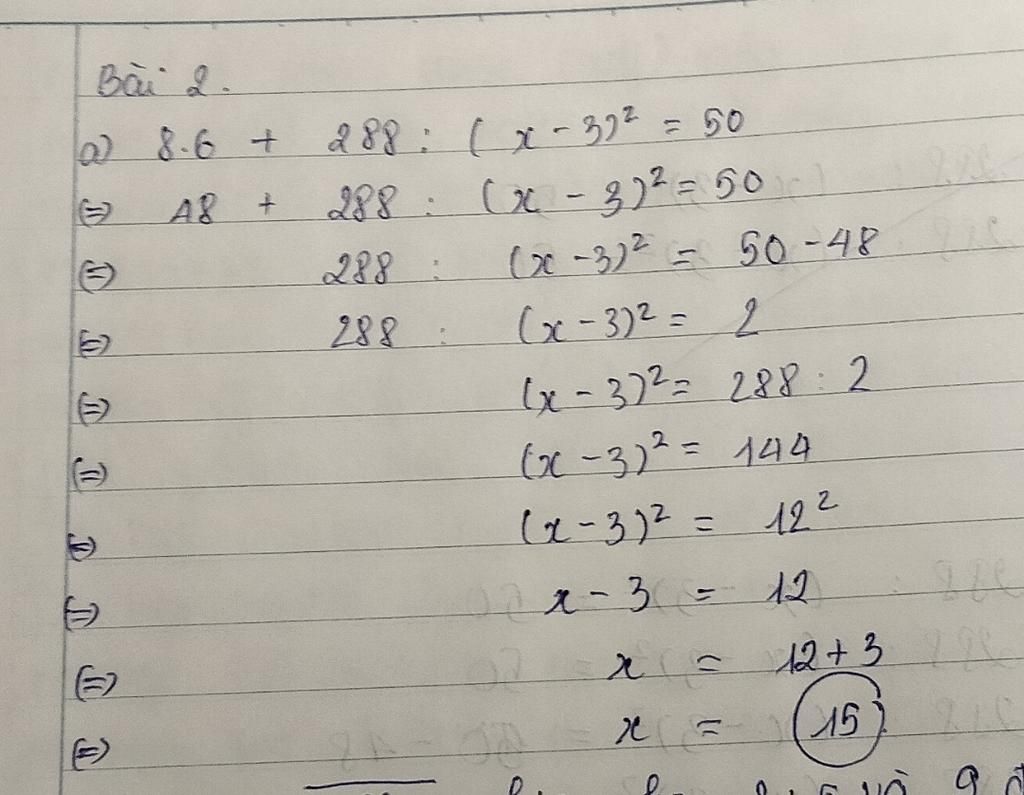 Bài 2.
a) 8.6 + 288 : (x - 3)² = 50
⇔ 48 + 288 : (x - 3)² = 50
⇔ 288 : (x - 3)² = 50 - 48
⇔ 288 : (x - 3)² = 2
⇔ (x - 3)² = 288 : 2
⇔ (x - 3)² = 144
⇔ (x - 3)² = 12²
⇔ x - 3 = 12
⇔ x = 12 + 3
⇔ x = 15
và 9